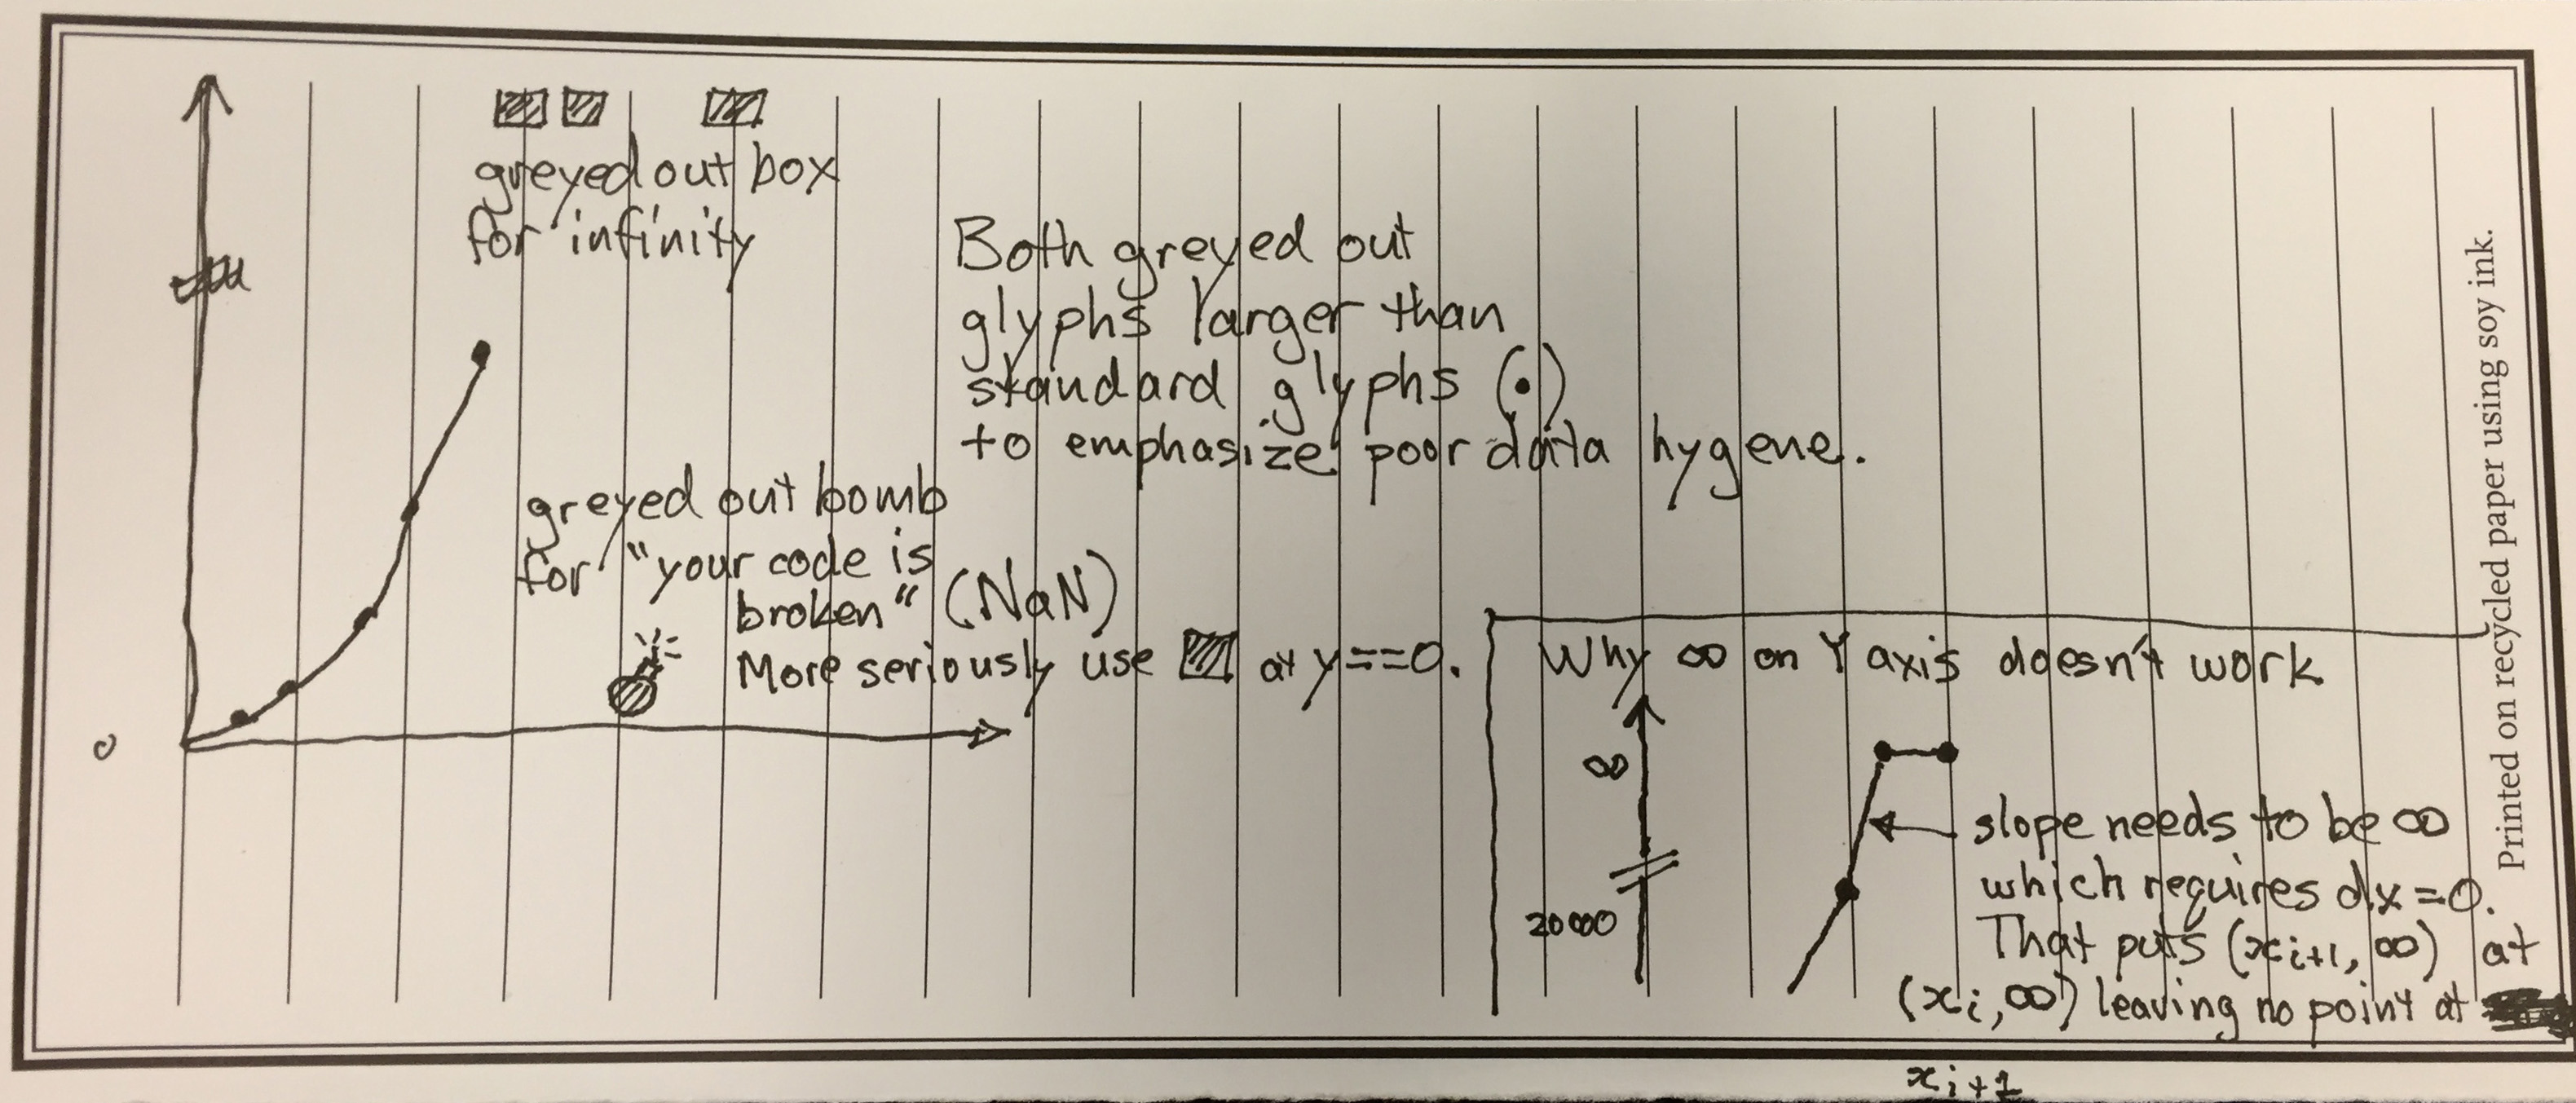 greyed out box
for infinity
Both greyed out
glyphs larger than
standard glyphs (•)
to emphasize poor data hygene.
greyed out bomb
for "your code is
broken" (NaN)
More seriously use at y==0.
0
Why ∞ on Y axis doesn't work
∞
20000
slope needs to be ∞
which requires dx=0.
That puts (xi+1, ∞) at
(xi, ∞) leaving no point at
xi+1
Printed on recycled paper using soy ink.